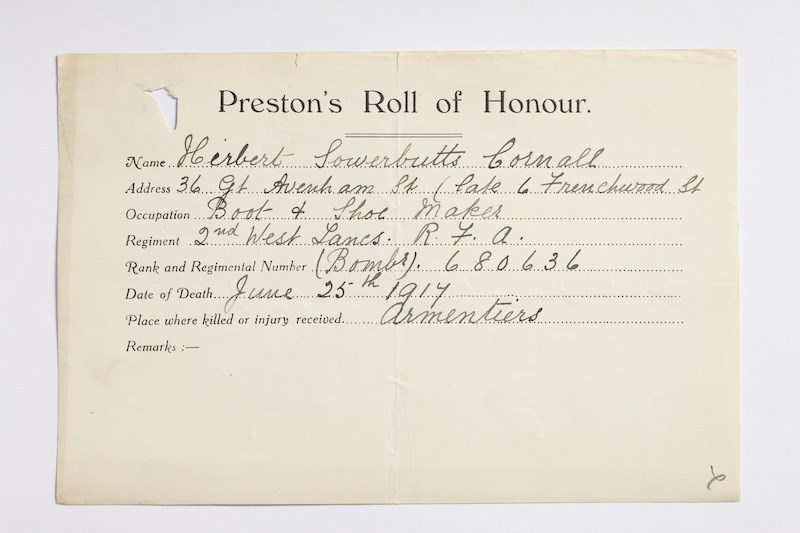 Preston's Roll of Honour.
Name Herbert Sowerbutts Cornall
Address 36 Gt Avenham St (late 6 Frenchwood St
Occupation Boot & Shoe Maker
Regiment 2nd West Lancs. R. F. A.
Rank and Regimental Number (Bombr). 680636
Date of Death June 25th 1917
Place where killed or injury received Armentiers
Remarks :—